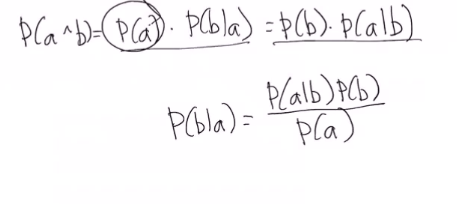 P(a^b)= P(a) · P(b|a) = P(b) · P(a|b)
P(b|a) = P(a|b)P(b) / P(a)